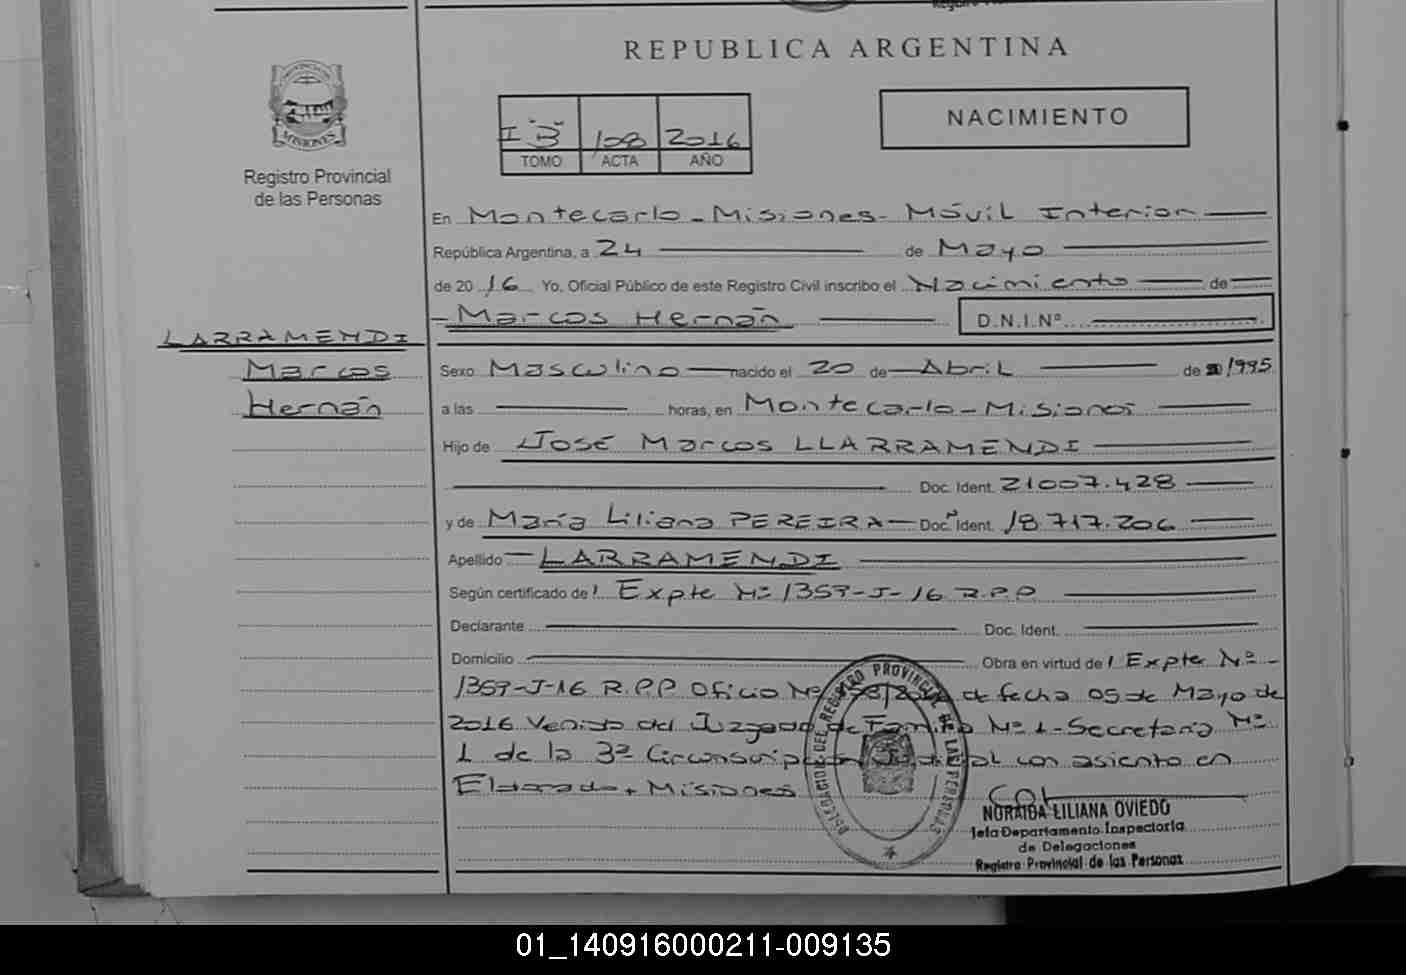 REPUBLICA ARGENTINA
PROVINCIA DE
MISIONES
Registro Provincial
de las Personas
I "B" 108 2016
TOMO ACTA AÑO
NACIMIENTO
En Montecarlo - Misiones - Móvil Interior
República Argentina, a 24 de Mayo
de 20 16 Yo, Oficial Público de este Registro Civil inscribo el Nacimiento de
Marcos Hernán D.N.I.Nº
LARRAMENDI
Marcos
Hernán
Sexo Masculino nacido el 20 de Abril de 1995
a las horas, en Montecarlo - Misiones
Hijo de José Marcos LLARRAMENDI
Doc. Ident. 21007.428
y de María Liliana PEREIRA Doc. Ident. 18.717.206
Apellido LARRAMENDI
Según certificado de Expte Nº 1359-J-16 R.P.P
Declarante Doc. Ident.
Domicilio Obra en virtud de Expte Nº
1359-J-16 R.P.P Oficio Nº de fecha 05 de Mayo de
2016 Venido del Juzgado de Familia Nº 1 - Secretaría Nº
1 de la 3ª Circunscripción Judicial con asiento en
Eldorado, Misiones
DELEGACION DEL REGISTRO PROVINCIAL DE LAS PERSONAS
NORAIDA LILIANA OVIEDO
Jefa Departamento Inspectoria
de Delegaciones
Registro Provincial de las Personas
01_140916000211-009135